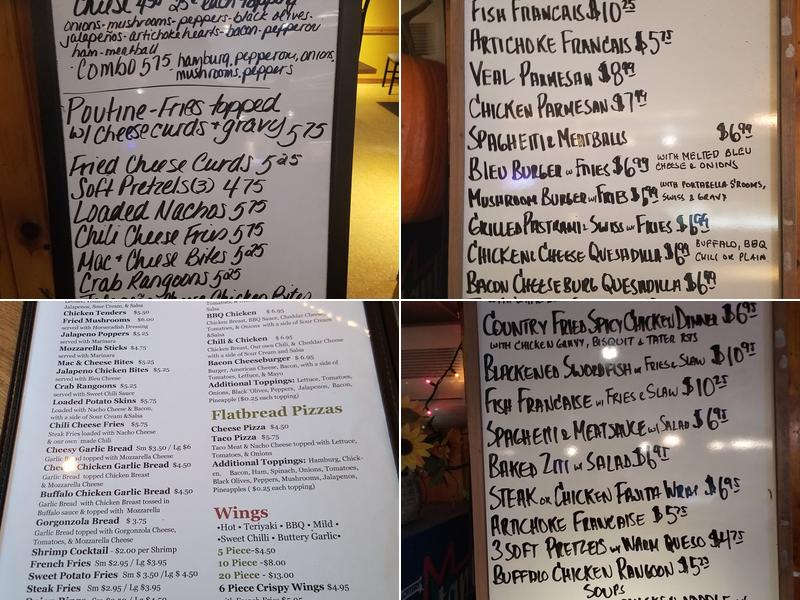 onions-mushrooms-peppers-black olives-
jalapeños-artichoke hearts-bacon-pepperoni
ham-meatball
-Combo 5.75 hamburg, pepperoni, onions,
mushrooms, peppers
Poutine-Fries topped
w/ cheese curds + gravy 5.75
Fried Cheese Curds 5.25
Soft Pretzels (3) 4.75
Loaded Nachos 5.75
Chili Cheese Fries 5.75
Mac + Cheese Bites 5.25
Crab Rangoons 5.25
Chicken Bites
FISH FRANCAIS $10.25
ARTICHOKE FRANCAIS $5.75
VEAL PARMESAN $8.99
CHICKEN PARMESAN $7.99
SPAGHETTI & MEATBALLS $6.99
BLEU BURGER w/ FRIES $6.99 WITH MELTED BLEU
CHEESE & ONIONS
MUSHROOM BURGER w/ FRIES $6.99 WITH PORTABELLA S'ROOMS,
SWISS & GRAVY
GRILLED PASTRAMI & SWISS w/ FRIES $6.95
CHICKEN & CHEESE QUESADILLA $6.99 BUFFALO, BBQ
CHILI OR PLAIN
BACON CHEESEBURG QUESADILLA $6.99
Jalapenos, Sour Cream, & Salsa
Chicken Tenders $5.50
Fried Mushrooms $6.00
served with Horseradish Dressing
Jalapeno Poppers $5.25
served w/ Marinara
Mozzarella Sticks $4.75
served w/ Marinara
Mac & Cheese Bites $5.25
Jalapeno Chicken Bites $5.25
served w/ Bleu Cheese
Crab Rangoons $5.25
served with Sweet Chili Sauce
Loaded Potato Skins $5.75
Loaded with Nacho Cheese & Bacon,
with a side of Sour Cream & Salsa
Chili Cheese Fries $5.75
Steak Fries loaded with Nacho Cheese
& our own made Chili
Cheesy Garlic Bread Sm $3.50 / Lg $6
Garlic Bread topped with Mozzarella Cheese
Chicken Garlic Bread $4.50
Garlic Bread topped Chicken Breast
& Mozzarella Cheese
Buffalo Chicken Garlic Bread $4.50
Garlic Bread with Chicken Breast tossed in
Buffalo sauce & topped with Mozzarella
Gorgonzola Bread $ 3.75
Garlic Bread topped with Gorgonzola Cheese,
Tomatoes, & Mozzarella Cheese
Shrimp Cocktail - $2.00 per Shrimp
French Fries Sm $2.95 / Lg $3.95
Sweet Potato Fries Sm $ 3.50 /Lg $ 4.50
Steak Fries Sm $2.95/ Lg $3.95
BBQ Chicken $ 6.95
Chicken Breast, BBQ Sauce, Cheddar Cheese,
Tomatoes, & Onions with a side of Sour
Cream & Salsa
Chili & Chicken $ 6.95
Chicken Breast, Our own Chili, & Cheddar Cheese
with a side of Sour Cream and Salsa
Bacon Cheeseburger $ 6.95
Burger, American Cheese, Bacon, with a side of
Tomatoes, Lettuce, & Mayo
Additional Toppings: Lettuce, Tomatoes,
Onions, Black Olives, Peppers, Jalapenos, Bacon,
Pineapple ($0.25 each topping)
Flatbread Pizzas
Cheese Pizza $4.50
Taco Pizza $5.75
Taco Meat & Nacho Cheese topped with Lettuce,
Tomatoes, & Onions
Additional Toppings: Hamburg, Chick-
en, Bacon, Ham, Spinach, Onions, Tomatoes,
Black Olives, Peppers, Mushrooms, Jalapenos,
Pineapples ( $0.25 each topping)
Wings
•Hot • Teriyaki • BBQ • Mild •
•Sweet Chili • Buttery Garlic•
5 Piece-$4.50
10 Piece -$8.00
20 Piece - $13.00
6 Piece Crispy Wings $4.95
COUNTRY FRIED SPICY CHICKEN DINNER $6.95
WITH CHICKEN GRAVY, BISQUIT & TATER TOTS
BLACKENED SWORDFISH w/ FRIES & SLAW $10.95
FISH FRANCAISE w/ FRIES & SLAW $10.25
SPAGHETTI & MEATSAUCE w/ SALAD $6.95
BAKED ZITI w/ SALAD $6.95
STEAK OR CHICKEN FAJITA WRAP $6.95
ARTICHOKE FRANCAISE $5.75
3 SOFT PRETZELS w/ WARM QUESO $4.75
BUFFALO CHICKEN RANGOON $5.25
SOUPS